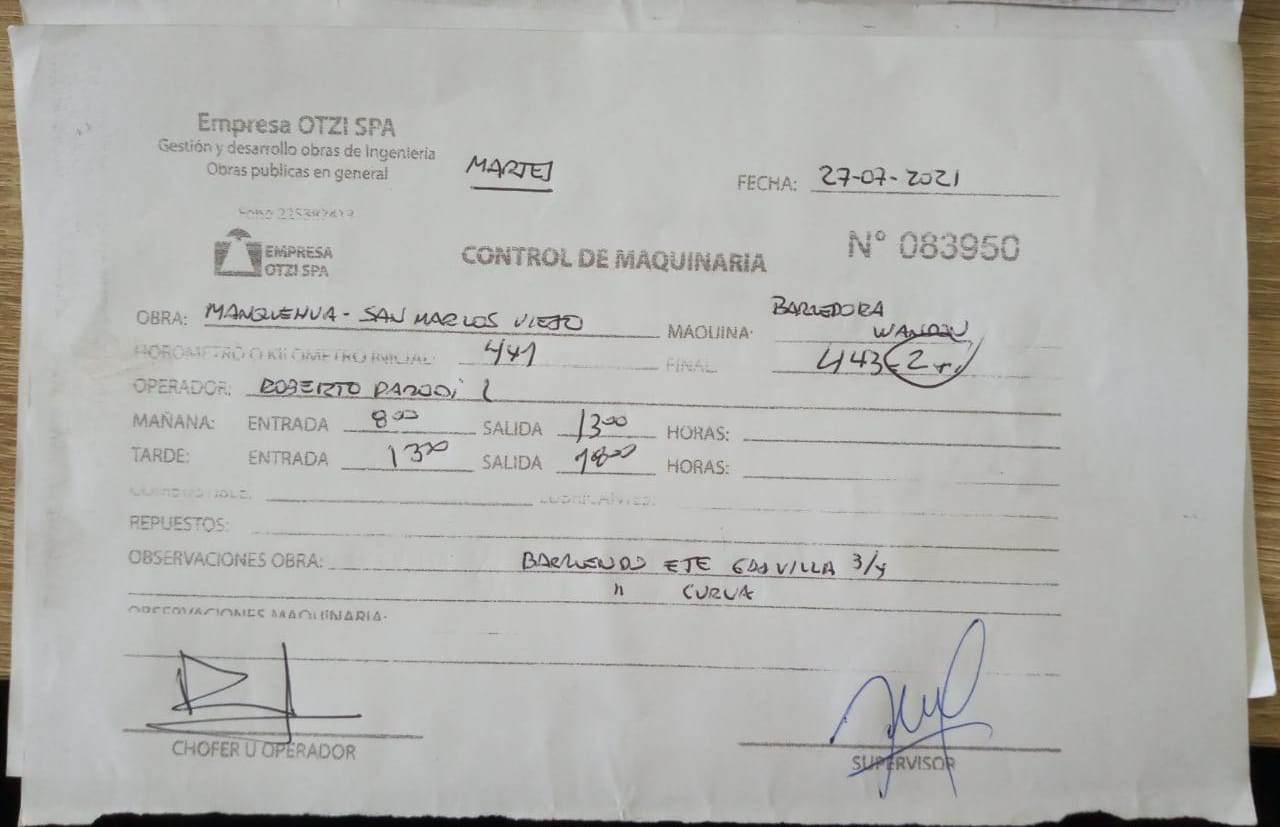 Empresa OTZI SPA
Gestión y desarrollo obras de Ingeniería
Obras publicas en general
MARTES
FECHA: 27-07-2021
EMPRESA
OTZI SPA
CONTROL DE MAQUINARIA
N° 083950
OBRA: MANQUEHUA - SAN MARCOS VIEJO
MAQUINA: BARREDORA
HOROMETRO O KILOMETRO INICIAL: 441 FINAL 443 2
OPERADOR: ROBERTO PARODI
MAÑANA: ENTRADA 800 SALIDA 1300 HORAS:
TARDE: ENTRADA 1300 SALIDA 1800 HORAS:
COMBUSTIBLE: LUBRICANTES:
REPUESTOS:
OBSERVACIONES OBRA: BARRIENDO EJE GRAVILLA 3/4
" CURVA
OBSERVACIONES MAQUINARIA:
CHOFER U OPERADOR
SUPERVISOR